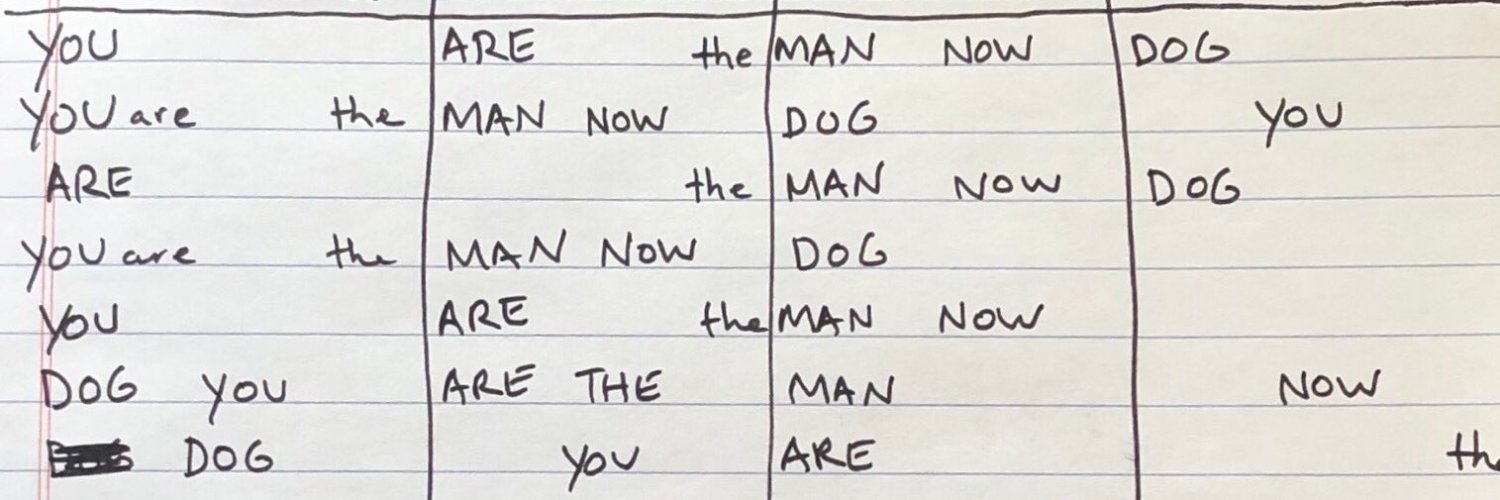 YOU ARE the MAN NOW DOG
YOU are the MAN NOW DOG YOU
ARE the MAN NOW DOG
YOU are the MAN NOW DOG
YOU ARE the MAN NOW
DOG YOU ARE THE MAN NOW
DOG YOU ARE